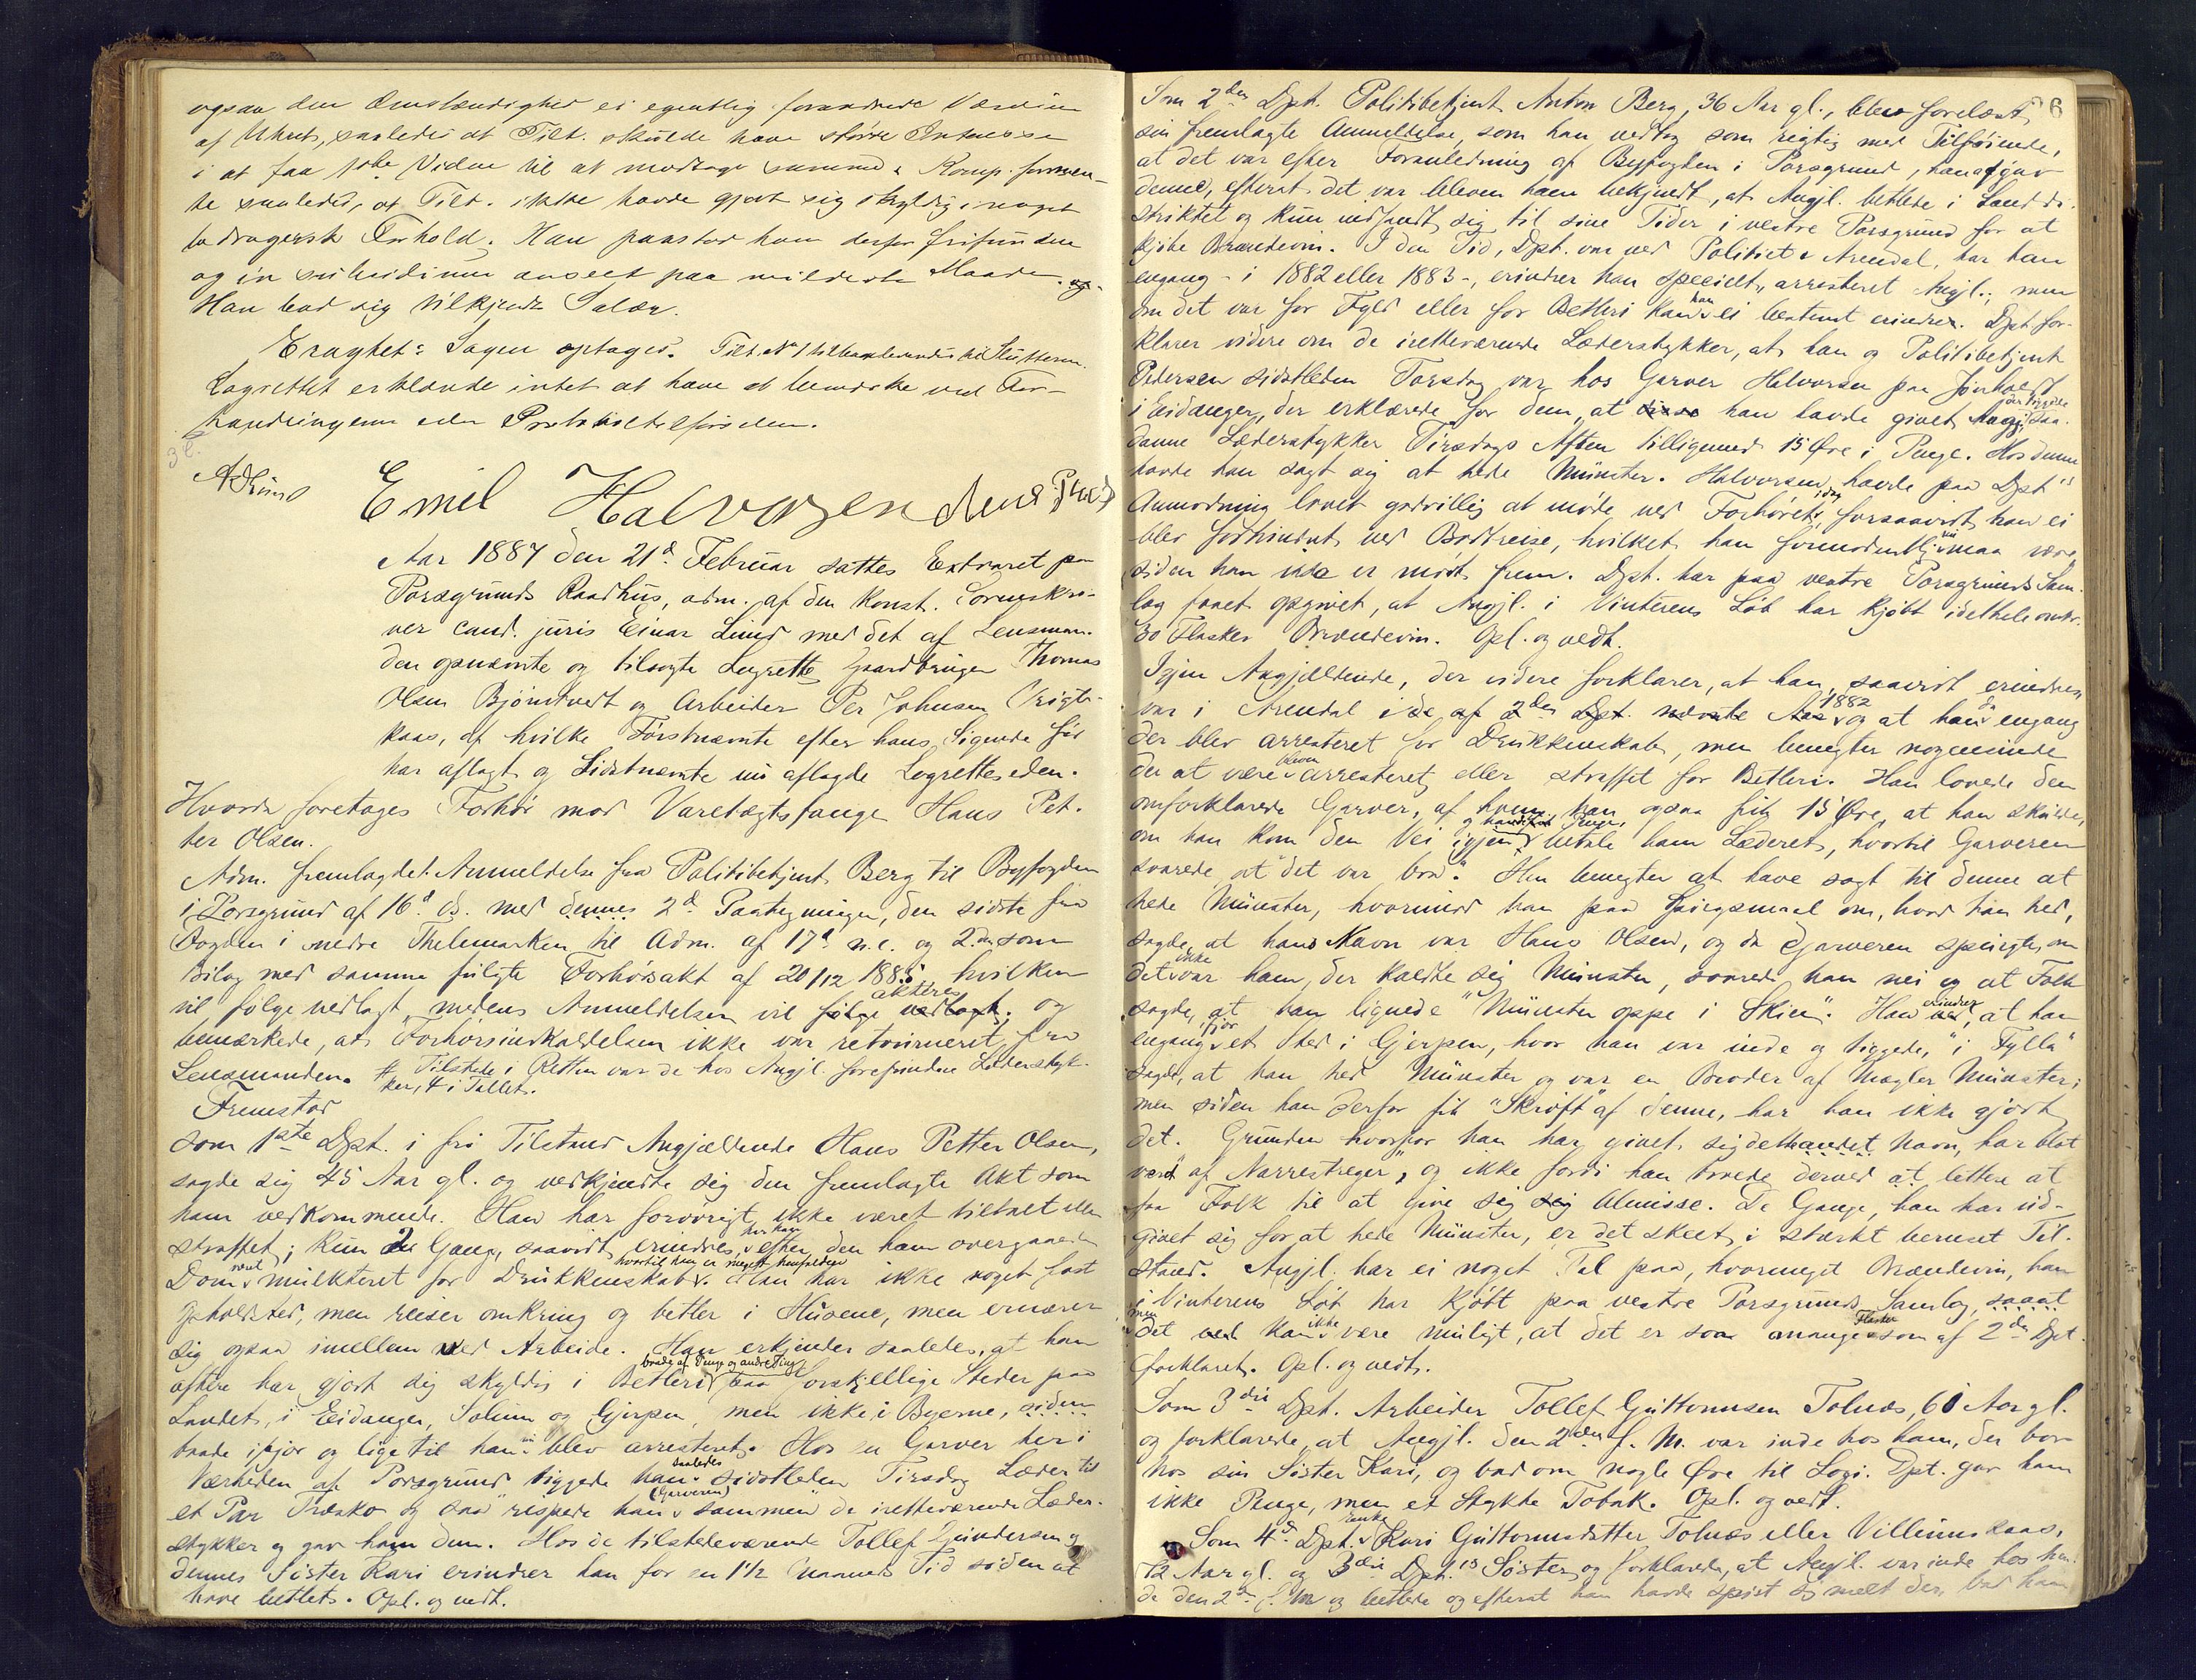 ogsaa den Omstændighed ei egentlig forandrede Værdien
af Uhret, saaledes at Tilt. skulde have større Interesse
i at faa 1ste Vidne til at modtage samme. Komp. formen-
te saaledes, at Tilt. ikke havde gjort sig skyldig i noget
bedragersk Forhold. Han paastod ham derfor frifunden
og in subsidium anseet paa mildeste Maade. og
Han bad sig tilkjendt Salær.
Eragtet: Sagen optages. Tilt. No 1 tilbageleveredes til Slutteren.
Lagrettet erklærede intet at have at bemærke ved For-
handlingerne eller Protokoltilførslen.
Emil Halvorsen
Aar 1887 den 21d Februar sattes Extraret paa
Porsgrunds Raadhus, adm. af den konst. Sorenskri-
ver cand. juris Einar Lund med det af Lensman-
den opnævnte og tilsagte Lagrette Gaardbruger Thomas
Olsen Bjørntvedt og Arbeider Per Johnsen Vrigts-
kaas, af hvilke Førstnævnte efter hans Sigende før
har aflagt og Sidstnævnte nu aflagde Lagretteseden.
Hvorda foretages Forhør mod Varetægtsfange Hans Pet-
ter Olsen.
Adm. fremlagde: Anmeldelse fra Politibetjent Berg til Byfogden
i Porsgrund af 16d ds. med dennes 2d Paategninger, den sidste fra
Fogden i nedre Thelemarken til Adm. af 17d n.e. og 2. den som
Bilag med samme fulgte Forhørsakt af 20/12 1885, hvilken
vil følge vedlagt, medens Anmeldelsen vil følge vedlagt akteres, og
bemærkede, at Forhørsindkaldelsen ikke var retourneret fra
Lensmanden. # Tilstede i Retten var de hos Angjl. forefundne Læderstyk-
ker, 4 i Tallet.
Fremstod
som 1ste Dpt. i fri Tilstand Angjældende Hans Petter Olsen,
sagde sig 45 Aar gl. og vedkjendte sig den fremlagte Akt som
ham vedkommende. Han har forøvrigt ikke været tiltalt eller
straffet; kun 2 Gange, saavidt erindres, er han efter den ham overgaaede
Dom været mulkteret for Drukkenskab, hvortil han er meget henfalden. Han har ikke noget fast
Opholdsted, men reiser omkring og betler i Husene, men ernærer
sig ogsaa imellem ved Arbeide. Han erkjender saaledes, at han
oftere har gjort sig skyldig i Betleri baade af Penge og andre Ting paa forskjellige Steder paa
Landet, i Eidanger, Solum og Gjerpen, men ikke i Byerne, siden
baade ifjor og lige til han nu blev arresteret. Hos en Garver her i
Nærheden af Porsgrund tiggede han saaledes sidstleden Tirsdag Læder til
et Par Træsko og saa "respede han (Garveren) sammen" de iretteværende Læder-
stykker og gav ham dem. Hos de tilstedeværende Tollef Gundersen og
dennes Søster Kari erindrer han for en 1 1/2 Maaneds Tid siden at
have betlet. Opl. og vedt.
Som 2den Dpt. Politibetjent Anton Berg, 36 Aar gl., blev forelæst
sin fremlagte Anmeldelse, som han vedtog som rigtig med Tilføiende,
at det var efter Foranledning af Byfogden i Porsgrund, han afgav
denne, efterat det var bleven ham bekjendt, at Angjl. betlede i Landdi-
striktet og kun indfandt sig til sine Tider i vestre Porsgrund for at
kjøbe Brændevin. I den Tid, Dpt. var ved Politiet i Arendal, har han
engang - i 1882 eller 1883 -, erindrer han specielt, arresteret Angjl.; men
om det var for Fyld eller for Betleri kan han ei bestemt erindre. Dpt. for-
klarer videre om de iretteværende Læderstykker, at han og Politibetjent
Pedersen sidstleden Torsdag var hos Garver Halvorsen paa Jønholdt
i Eidanger, der erklærede for dem, at disse han havde givet Angjl. der tiggede saa-
danne Læderstykker Tirsdags Aften tilligemed 15 Øre i Penge. Hos denne
havde han sagt sig at hede Münster. Halvorsen havde paa Dpt.s
Anmodning lovet godvillig at møde ved Forhøret idag, forsaavidt han ei
blev forhindret ved Bortreise, hvilket han formodentlig nu maa være,
siden han ikke er mødt frem. Dpt. har paa vestre Porsgrunds Sam-
lag faaet opgivet, at Angjl. i Vinterens Løb har kjøbt idethele omtr.
30 Flasker Brændevin. Opl. og vedt.
Igjen Angjældende, der videre forklarer, at han, saavidt erindres,
var i Arendal i de af 2den Dpt. nævnte Aar 1882 og at han engang
der blev arresteret for Drukkenskab, men benegter nogensinde
der at være bleven arresteret eller straffet for Betleri. Han lovede den
omforklarede Garver, af hvem han ogsaa fik 15 Øre, at han skulde,
om han kom den Vei igjen og havde Penge, betale ham Læderet, hvortil Garveren
svarede, at "det var bra". Han benegter at have sagt til denne at
hede Münster, hvorimod han paa Spørgsmaal om, hvad han hed,
sagde, at hans Navn var Hans Olsen, og da Garveren spurgte, om
det ikke var ham, der kaldte sig Münster, svarede han nei og at Folk
sagde, at han lignede "Münster oppe i Skien". Han ved erindrer, at han
engang ifjor et Sted i Gjerpen, hvor han var inde og tiggede, "i Fylla"
sagde, at han hed Münster og var en Broder af Mægler Münster;
men siden han derfor fik "Skrøft" af denne, har han ikke gjort
det. Grunden hvorfor han har givet sig det andet Navn, har blot
været af "Narrestreger", og ikke fordi han troede derved at lettere at
faa Folk til at give sig sig Almisse. De Gange, han har ud-
givet sig for at hede Münster, er det skeet i stærkt beruset Til-
stand. Angjl. har ei noget Tal paa, hvormeget Brændevin, han
i Vinterens Løb har kjøbt paa vestre Porsgrunds Samlag, saaat
men det ved kan ikke være muligt, at det er saa mange Flasker som af 2den Dpt.
forklaret. Opl. og vedt.
Som 3die Dpt. Arbeider Tollef Guttormsen Tolnæs, 60 Aar gl.
og forklarede, at Angjl. den 2den f. M. var inde hos ham, der bor
hos sin Søster Kari, og bad om nogle Øre til Logi. Dpt. gav ham
ikke Penge, men et Stykke Tobak. Opl. og vedt.
Som 4d Dpt. Enke Kari Guttormsdatter Tolnæs eller Villumskaas,
72 Aar gl. og 3die Dpt.is Søster og forklarede, at Angjl. var inde hos hen-
de den 2den f. M. og betlede og efterat han havde spist sig mæt der, bad han